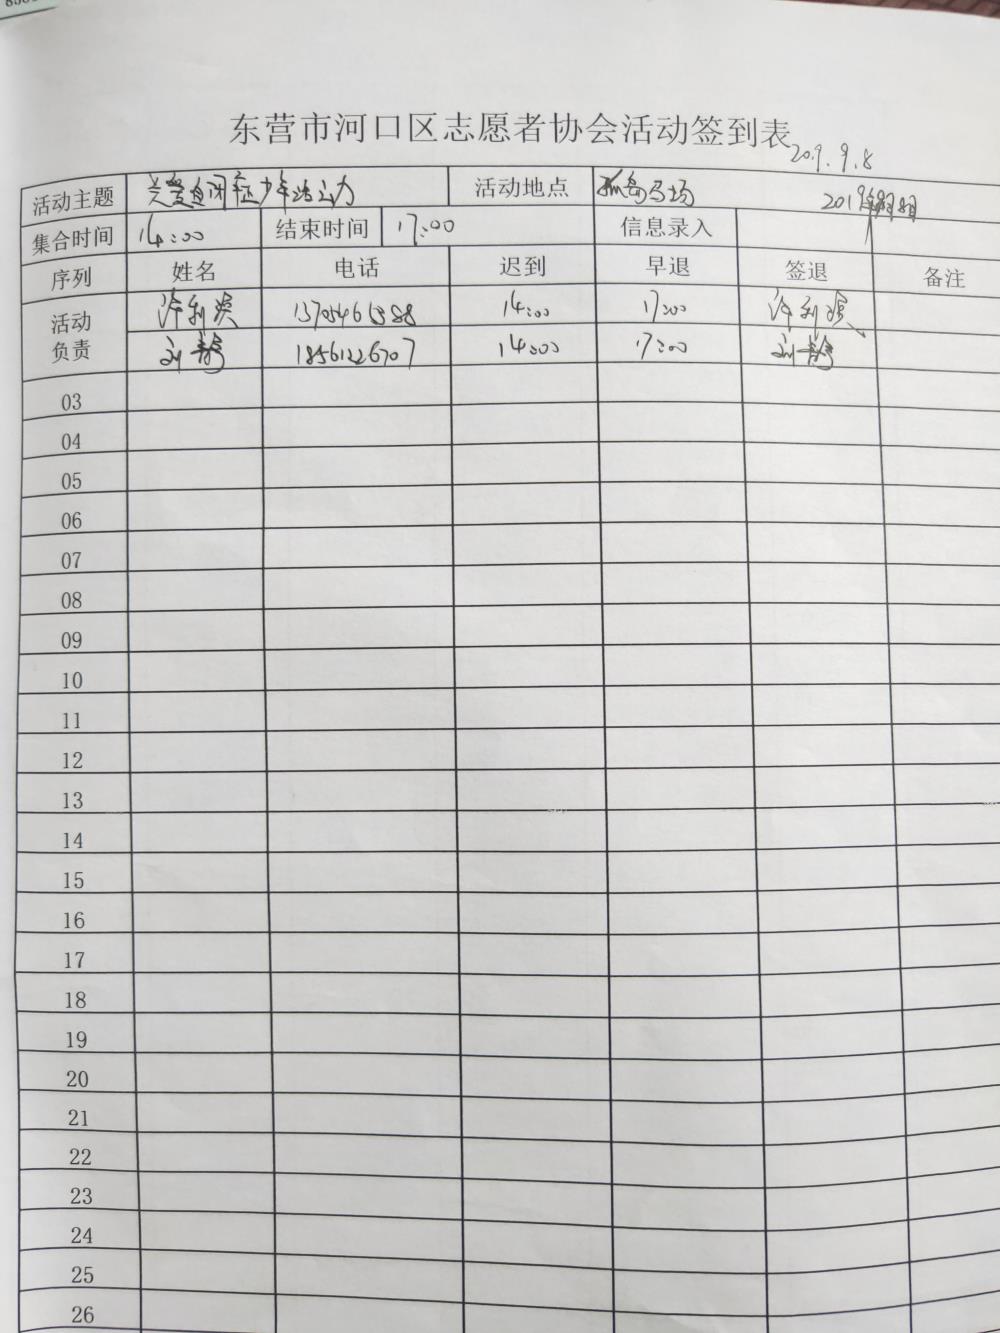 东营市河口区志愿者协会活动签到表
2019.9.8
活动主题 关爱自闭症少年活动 活动地点 孤岛马场 2019年9月8日
集合时间 14:00 结束时间 17:00 信息录入
序列 姓名 电话 迟到 早退 签退 备注
活动负责 许利 13705461588 14:00 17:00 许利
刘静 18561226707 14:00 17:00 刘静
03
04
05
06
07
08
09
10
11
12
13
14
15
16
17
18
19
20
21
22
23
24
25
26